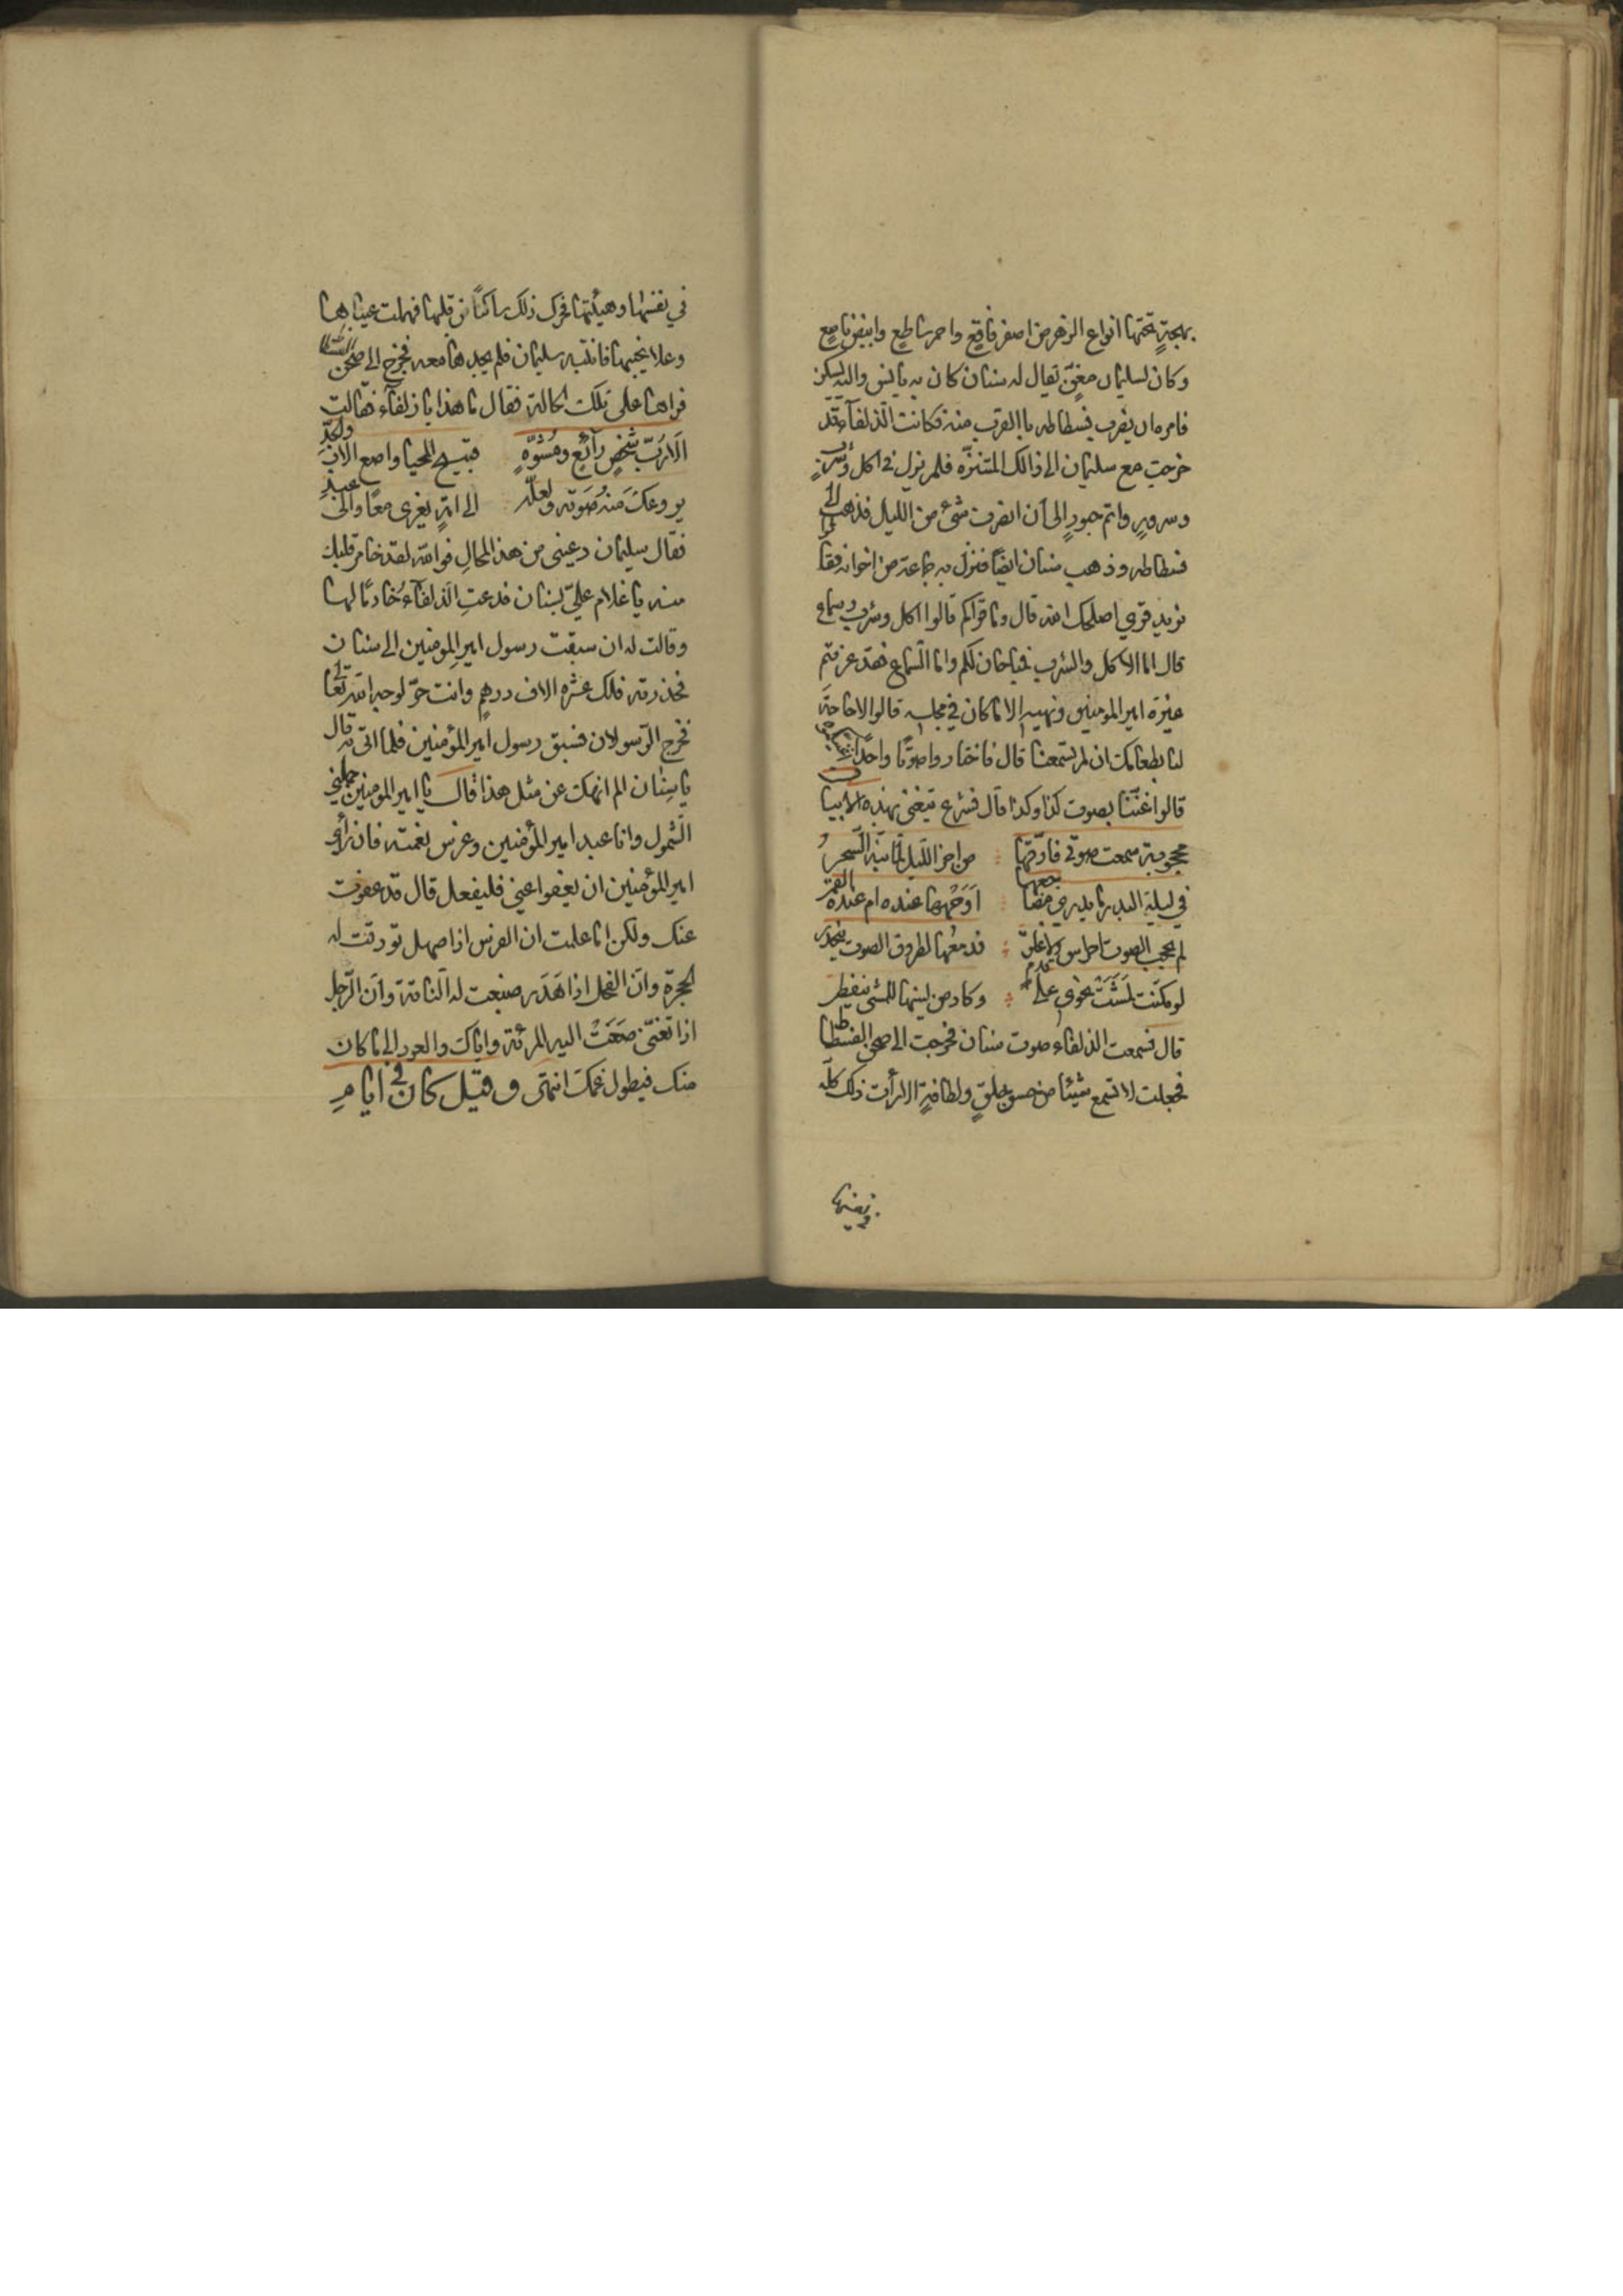 بهجةٍ تحتها انواع الزهر من اصفر فاقع واحمر ساطع وابيض ناصع
وكان لسليمان مغنّ يقال له سنان كان به يانس واليه يسكن
فامره ان يضرب فسطاطه بالقرب منه فكانت الذلفآء قد
خرجت مع سليمان الى ذالك المتنزّه فلم يزل في اكل وشرب
وسرورٍ واتم حبورٍ الى ان انصرف شئ من الليل فذهب الى
فسطاطه وذهب سنان ايضًا فنزل به جماعة من اخوانه فقالوا
نريد قرى اصلحك الله قال وما قراكم قالوا اكل وشرب وسماع
قال اما الاكل والشرب فمباحان لكم واما السّماع فقد عرفتم
غيرة امير المومنين ونهيه الا ما كان في مجلسه قالوا لا حاجة
لنا بطعامك ان لم تسمعنا قال فاختاروا صوتًا واحدًا
قالوا غنّنا بصوت كذا وكذا قال فشرع يتغنى بهذه الابيا
محجوبة سمعت صوتي فارّقها من اخر الليل لما نبّه السّحر
في ليلة البدر ما يدري مضاجعها اوجهها عنده ام عنده القمر
لم يحجب الصوت احراس ولا غلق فدمعها لطروق الصوت ينحدر
لو مكنت لمشت نحوى على قدم وكاد من لينها للمشى ينفطر
قال فسمعت الذلفاء صوت سنان فخرجت الى صحن الفسطاط
فجعلت لا تسمع شيئًا من حسن خلقٍ ولطافةٍ الا رأت ذلك كلّه
في نفسها
في نفسها وهيئتها فحرك ذلك ساكنًا من قلبها فهملت عيناها
وعلا نحيبها فانتبه سليمان فلم يجدها معه فخرج الى صحن
فراها على تلك الحالة فقال ما هذا يا ذلفآء فقالت
الا ربّ شخصٍ رائعٍ ومشوّهٍ قبيح المحيا واضع الاب والجدّ
يروعك منه صوته ولعلّه الى امةٍ يعزى معًا والى عبدٍ
فقال سليمان دعينى من هذا الحال فوالله لقد خامر قلبك
منه يا غلام علىّ بسنان فدعت الذلفآء خادمًا لها
وقالت له ان سبقت رسول امير المومنين الى سنان
فحذرته فلك عشرة الاف درهمٍ وانت حرّ لوجه الله تعالى
فخرج الرّسولان فسبق رسول امير المؤمنين فلما اتى به قال
يا سنان الم انهك عن مثل هذا قال يا امير المومنين حملني
الشمول وانا عبد امير المؤمنين وغرس نعمته فان رأى
امير المؤمنين ان يعفوا عني فليفعل قال قد عفوت
عنك ولكن اما علمت ان الفرس اذا صهل تودقت له
الحجرة وانّ الفحل اذا هدر صبغت له النّاقة وان الرّجل
اذا تغنّى صغت اليه المرئة واياك والعود الى ما كان
منك فيطول غمك انتهى وقيل كان في ايامِ